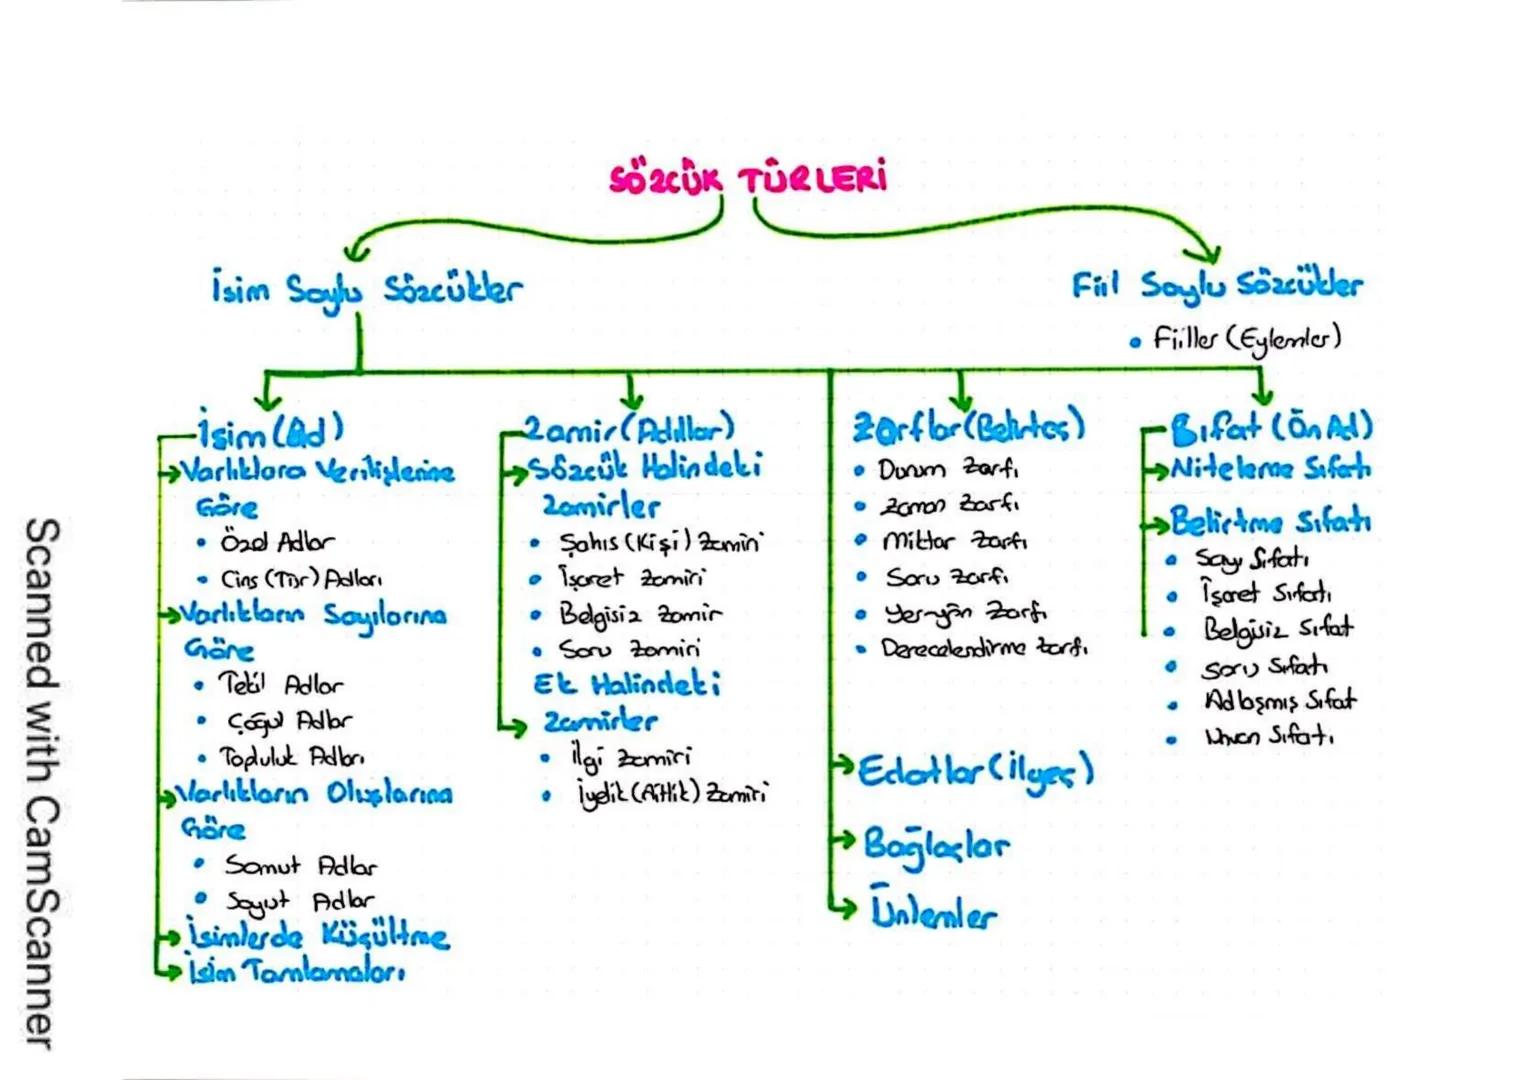 SÖZCÜK TÜRLERİ
İsim Soylu Sözcükler
Fiil Soylu Sözcükler
• Fiiller (Eylemler)
İsim (Ad)
Varlıklara Verilişlerine
Göre
• Özel Adlar
• Cins (Tür) Adları
Varlıkların Sayılarına
Göre
• Tekil Adlar
• Çoğul Adlar
• Topluluk Adları
Varlıkların Oluşlarına
Göre
• Somut Adlar
• Soyut Adlar
İsimlerde Küçültme
İsim Tamlamaları
Zamir (Adıllar)
Sözcük Halindeki
Zamirler
• Şahıs (Kişi) Zamiri
• İşaret Zamiri
• Belgisiz Zamir
• Soru Zamiri
Ek Halindeki
Zamirler
• İlgi Zamiri
• İyelik (Aitlik) Zamiri
Zarflar (Belirteç)
• Durum Zarfı
• Zaman Zarfı
• Miktar Zarfı
• Soru Zarfı
• Yer-yön Zarfı
• Derecelendirme Zarfı
Edatlar (İlgeç)
Bağlaçlar
Ünlemler
Sıfat (Ön Ad)
Niteleme Sıfatı
Belirtme Sıfatı
• Sayı Sıfatı
• İşaret Sıfatı
• Belgisiz Sıfat
• Soru Sıfatı
• Adlaşmış Sıfat
• Unvan Sıfatı
Scanned with CamScanner